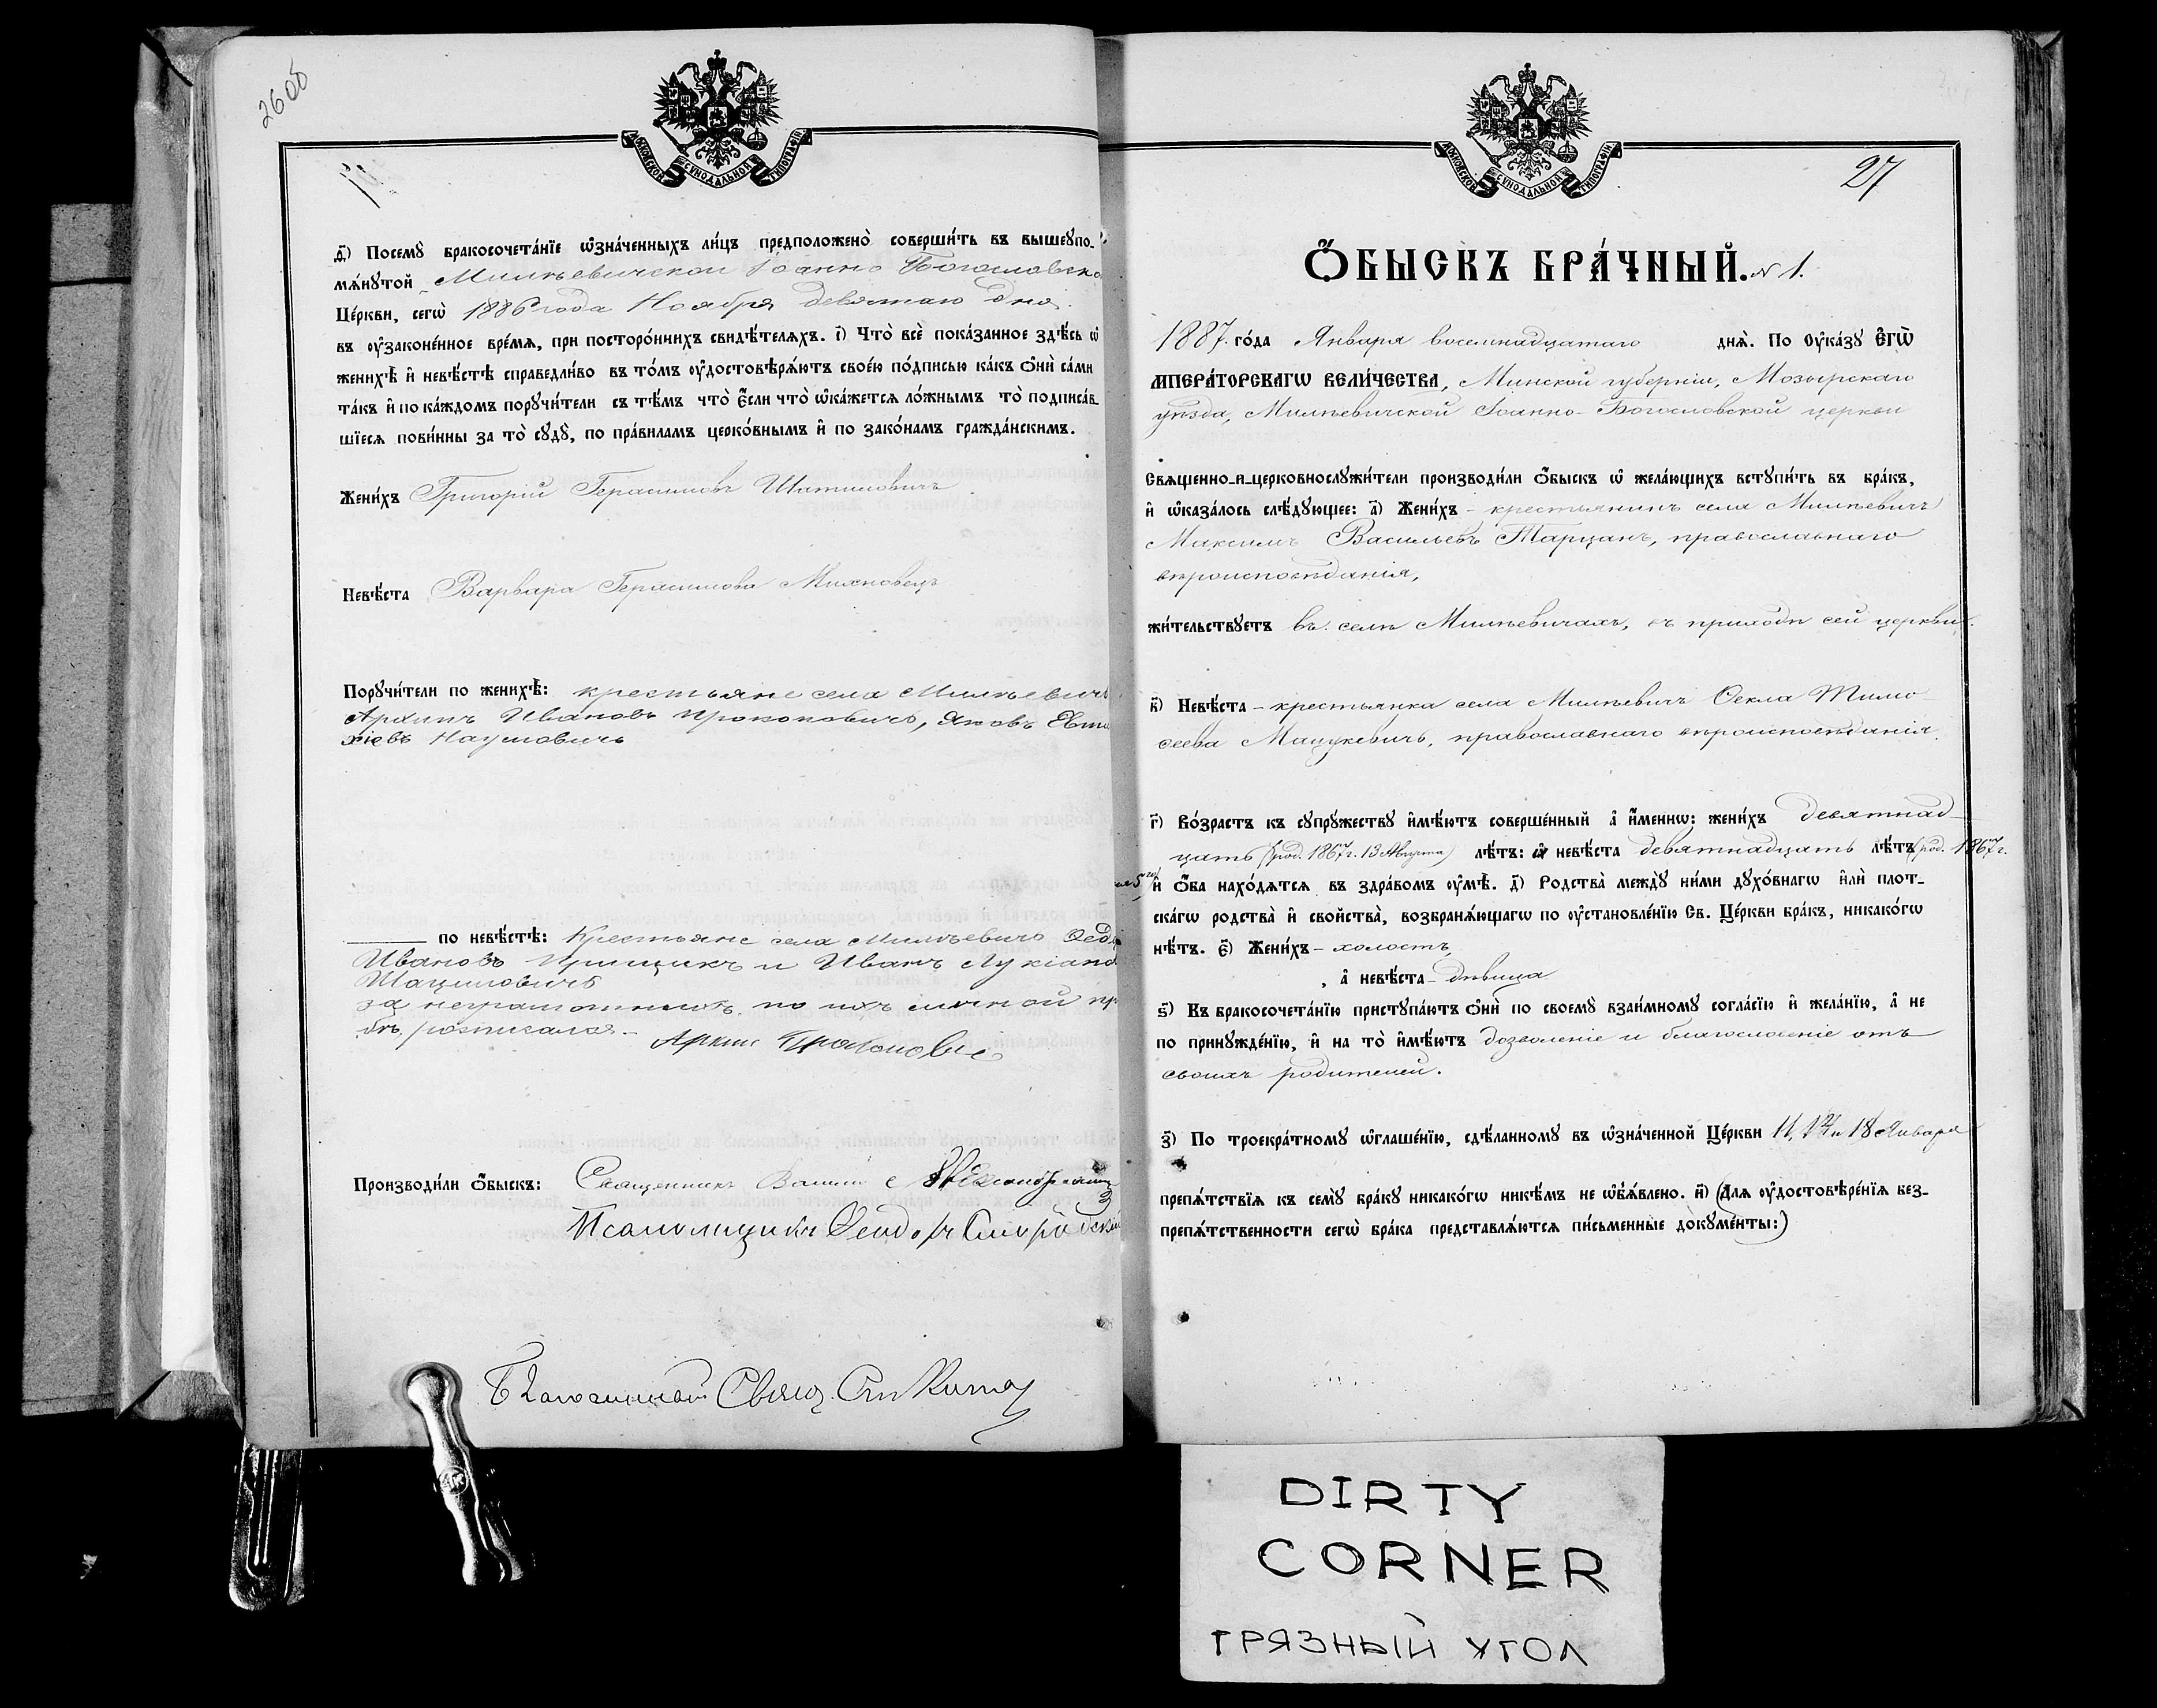 2608
МОСКОВСКОЙ СѴНОДАЛЬНОЙ ТИПОГРАФІИ
Посему̀ бракосочета́нїе ѡ҆зна́ченныхъ ли́цъ предположено̀ соверши́ть въ вышеупо-
мѧ́нутой Милѣевичской Іоанно Богословско
Це́ркви, сегѡ̀ 1886 года Ноября девятаго дня.
въ ᲂу҆законе́нное вре́мѧ, при посторо́ннихъ свидѣ́телѧхъ. і҃) Что̀ всѐ пока́занное здѣ́сь ѡ҆
женихѣ̀ и҆ невѣ́стѣ справедли́во въ то́мъ ᲂу҆достовѣрѧ́ютъ свое́ю по́дписью ка́къ ѻ҆нѝ са́ми
та́къ и҆ по ка́ждомъ поручи́тели съ тѣ́мъ что̀ є҆́сли что̀ ѡ҆ка́жется ло́жнымъ то̀ подписа́в-
шїеся пови́нны за то̀ суду̀, по пра́виламъ церко́внымъ и҆ по зако́намъ гражда́нскимъ.
Жени́хъ Григорій Герасимовъ Шатиловичъ
Невѣ́ста Варвара Герасимова Михновецъ
Поручи́тели по женихѣ̀: крестьяне села Милѣевичъ
Архипъ Ивановъ Прокоповичъ, Яковъ Евти
хіевъ Наумовичъ
по невѣ́стѣ: Крестьяне села Милѣевичъ Ѳедо
Ивановъ Прищикъ и Иванъ Лукіано
Шациловичъ
за неграмотныхъ по ихъ личной пр
бѣ, росписался.-
Архип Прокопович
Производи́ли ѻ҆́быскъ: Священникъ
Псаломщикъ Ѳеодоръ
Благочинный Свящ.
МОСКОВСКОЙ СѴНОДАЛЬНОЙ ТИПОГРАФІИ
27
Ѻ҆́БЫСКЪ БРА́ЧНЫЙ. № 1.
1887. го́да Января восемнадцатаго днѧ̀. По Оу҆ка́зу Є҆гѡ̀
ИМПЕРА́ТОРСКАГѠ ВЕЛИ́ЧЕСТВА, Минской губерніи, Мозырскаго
уѣзда, Милѣевичской Іоанно-Богословской церкви
Свѧщенно-и-церковнослужи́тели производи́ли ѻ҆́быскъ ѡ҆ жела́ющихъ вступи́ть въ бра́къ,
и҆ ѡ҆каза́лось слѣ́дующее: а҃) Жени́хъ - крестьянинъ села Милѣевичъ
Максимъ Васильевъ Тарцанъ, православнаго
вѣроисповѣданія,
жи́тельствуетъ въ селѣ Милѣевичахъ, въ приходѣ сей церкви.
в҃) Невѣ́ста - крестьянка села Милѣевичъ Ѳекла Тимо-
ѳеева Мацукевичъ, православнаго вѣроисповѣданія.
г҃) Во́зрастъ къ супру́жеству и҆мѣ́ютъ соверше́нный а҆ и҆́меннѡ: жени́хъ девятнад-
цать (род. 1867 г. 13 Августа) лѣ́тъ: а҆ невѣ́ста девятнадцать лѣ́тъ (род. 1867 г.
и҆ ѻ҆́ба нахо́дѧтся въ здра́вомъ ᲂу҆мѣ̀. д҃) Родства̀ между̀ ни́ми духо́внагѡ и҆лѝ плот-
ска́гѡ родства̀ и҆ свойства̀, возбранѧ́ющагѡ по ᲂу҆становле́нїю Св. Це́ркви бра́къ, никако́гѡ
нѣ́тъ. є҃) Жени́хъ - холостъ
, а҆ невѣ́ста - дѣвица
ѕ҃) Къ бракосочета́нїю приступа́ютъ ѻ҆нѝ по своему̀ взаи́мному согла́сїю и҆ жела́нїю, а҆ не
по принужде́нїю, и҆ на то̀ и҆мѣ́ютъ дозволеніе и благословеніе отъ
своихъ родителей.
з҃) По троекра́тному ѡ҆глаше́нїю, сдѣ́ланному въ ѡ҆зна́ченной Це́ркви 11, и 18 Января
препѧ́тствїѧ къ сему̀ бра́ку никако́гѡ никѣ́мъ не ѡ҆б̾ѧ́влено. и҃) (Для ᲂу҆достовѣре́нїѧ без-
препѧ́тственности сегѡ̀ бра́ка представлѧ́ются пи́сьменные докуме́нты:)
DIRTY
CORNER
ГРЯЗНЫЙ УГОЛ